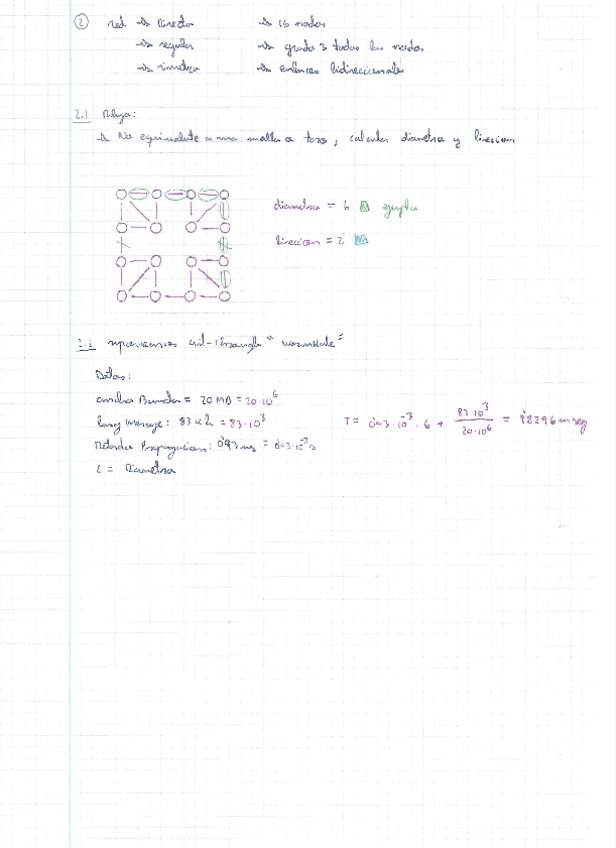 2 red: ↳ Directa ↳ 16 nodos
↳ regular ↳ grado 3 todos los nodos
↳ simetrica ↳ enlaces bidireccionales
2.1 Dibuja:
↳ No equivalente a una malla o toro, calcular diametro y biseccion
diametro = 6 ejemplo
biseccion = 2
2.2 cut-through "wormhole"
Datos:
ancho Banda = 20 MB = 20·10⁶
long mensaje: 83 kb = 83·10³
Retardo Propagacion: 0'43 ms = 0'43·10⁻³ s
L = Diametro
T = 0'43·10⁻³ · 6 + 83·10³ / 20·10⁶ = mseg